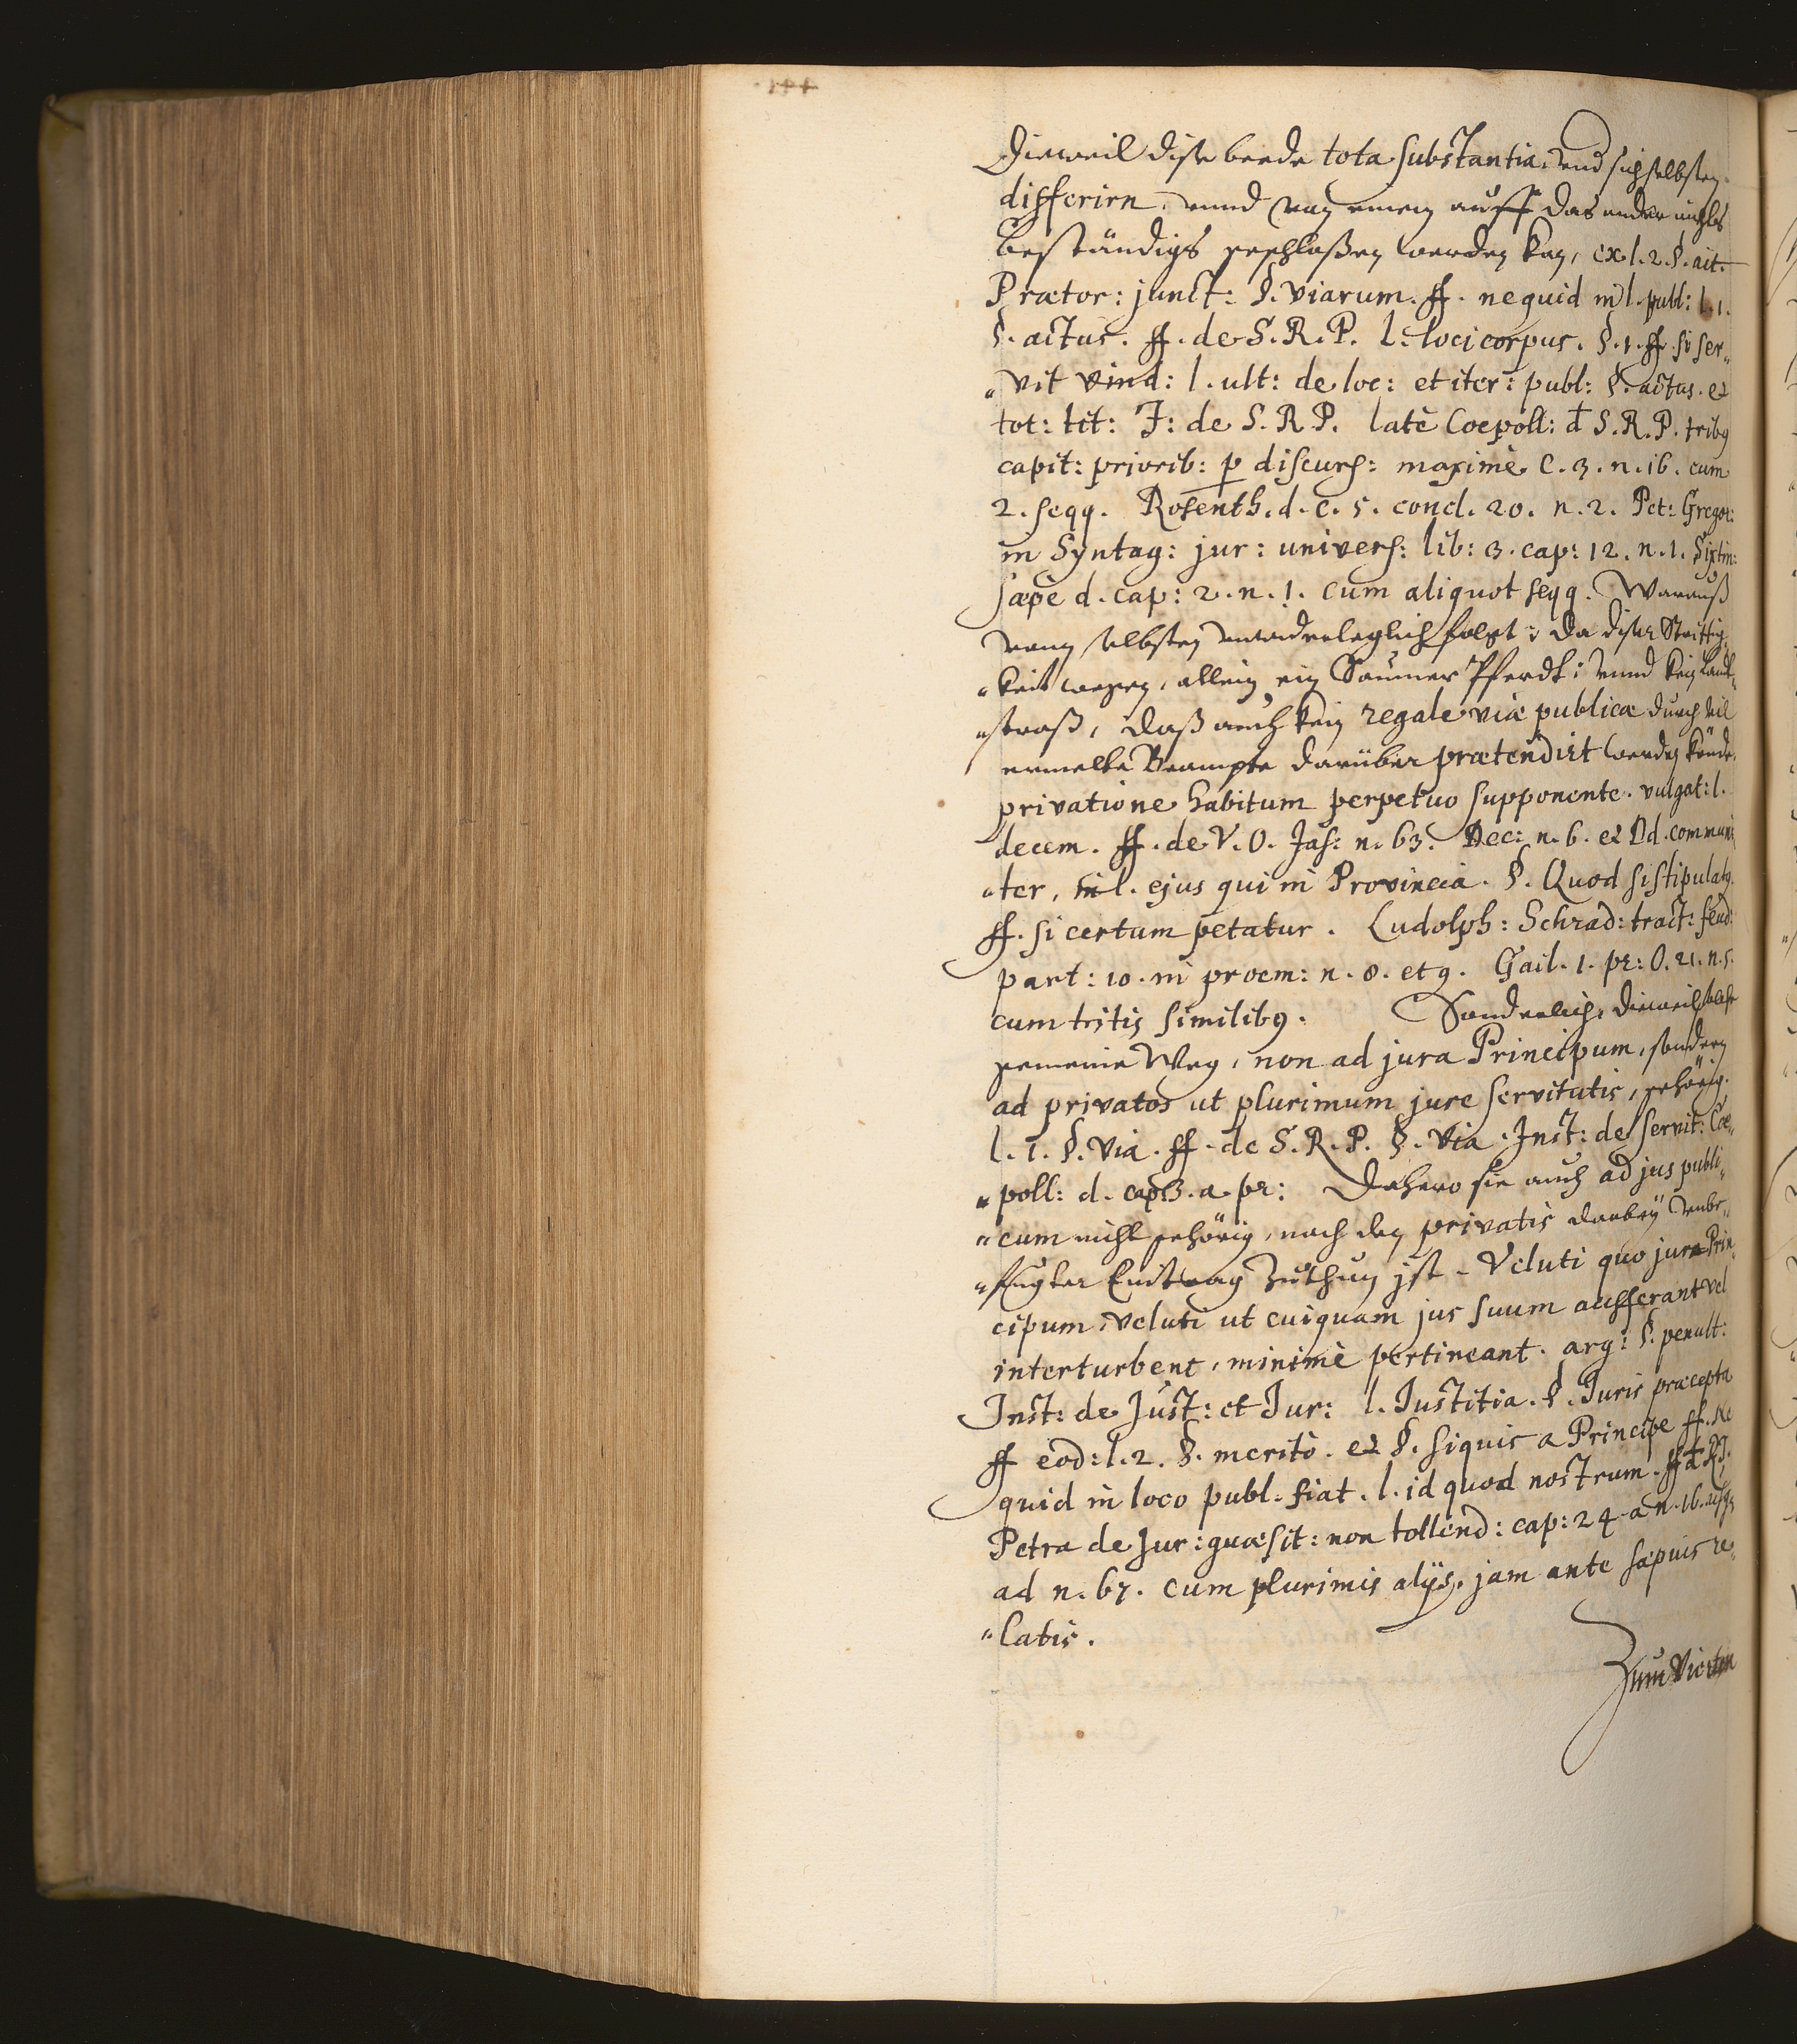 Dieweil dise beede tota substantia, vnd sich selbsten
differirn, vnnd von einem auff das ander nichts
beständigs geschloßen werden kan, ex l. 2. §. ait.
Prætor: junct: §. viarum. ff. nequid in l. publ: l. 1.
§. actus. ff. de S. R. P. l. loci corpus. §. 1. ff. si ser„
„vit vind: l. ult: de loc: et iter: publ: §. actus. et
tot: tit: J: de S. R. P. latè Coepoll: d S. R. P. trib9
capit: priorib: p discurs: maximè C. 3. n. 16. cum
2. seqq. Rosenth. d. c. 5. concl. 20. n. 2. Pet: Gregor:
in Syntag: jur: univers: lib: 3. cap: 12. n. 1. Sixtin:
sæpè d. cap: 2. n. 1. cum aliquot seqq. Warauß
vonn selbsten vnwiderleglich folgt: da diser Strittig„
„keit wegen, allein ein Saumer Pferdt: vnnd kein Landt„
„straß, daß auch kein regale viæ publicæ durch vil
ermelte Beampte darüber prætendirt werden könde,
privatione habitum perpetuo supponente. vulgat: l.
decem. ff. de V. O. Jas: n. 63. Dec: n. 6. et Dd. communi„
„ter, in l. ejus qui in Provincia. §. Quod si stipulat9.
ff. si certum petatur. Ludolph: Schrad: tract: feud:
part: 10. in proem: n. 8. et 9. Gail. 1. pr: O. 21. n. 5.
cum tritis similib9. Sonderlich, dieweil solche
gemeine Weg, non ad jura Principum, sondern
ad privatos ut plurimum jure servitutis, gehörig.
l. 1. §. via. ff. de S. R. P. §. via. Inst: de servit: Coe„
„poll: d. cap: 3. a. pr: Dahero sie auch ad jus publi„
„cum nicht gehörig, noch den privatis darbey vnbe„
„fuegter Eintrag zuthun jst. Veluti quo jura Prin„
cipum, veluti ut cuiquam jus suum aufferant vel
interturbent, minimè pertineant. arg: §. penult:
Inst: de Just: et Jur: l. Justitia. §. Juris præcepta
ff eod: l. 2. §. meritò. et §. siquis a Principe ff. Ne
quid in loco publ. fiat. l. id quod nostrum. ff d RJ.
Petra de Jur: quæsit: non tollend: cap: 24. a n. 16. usq3
ad n. 67. cum plurimis alijs, jam ante sæpuis re„
„latis.
Zum Vierten